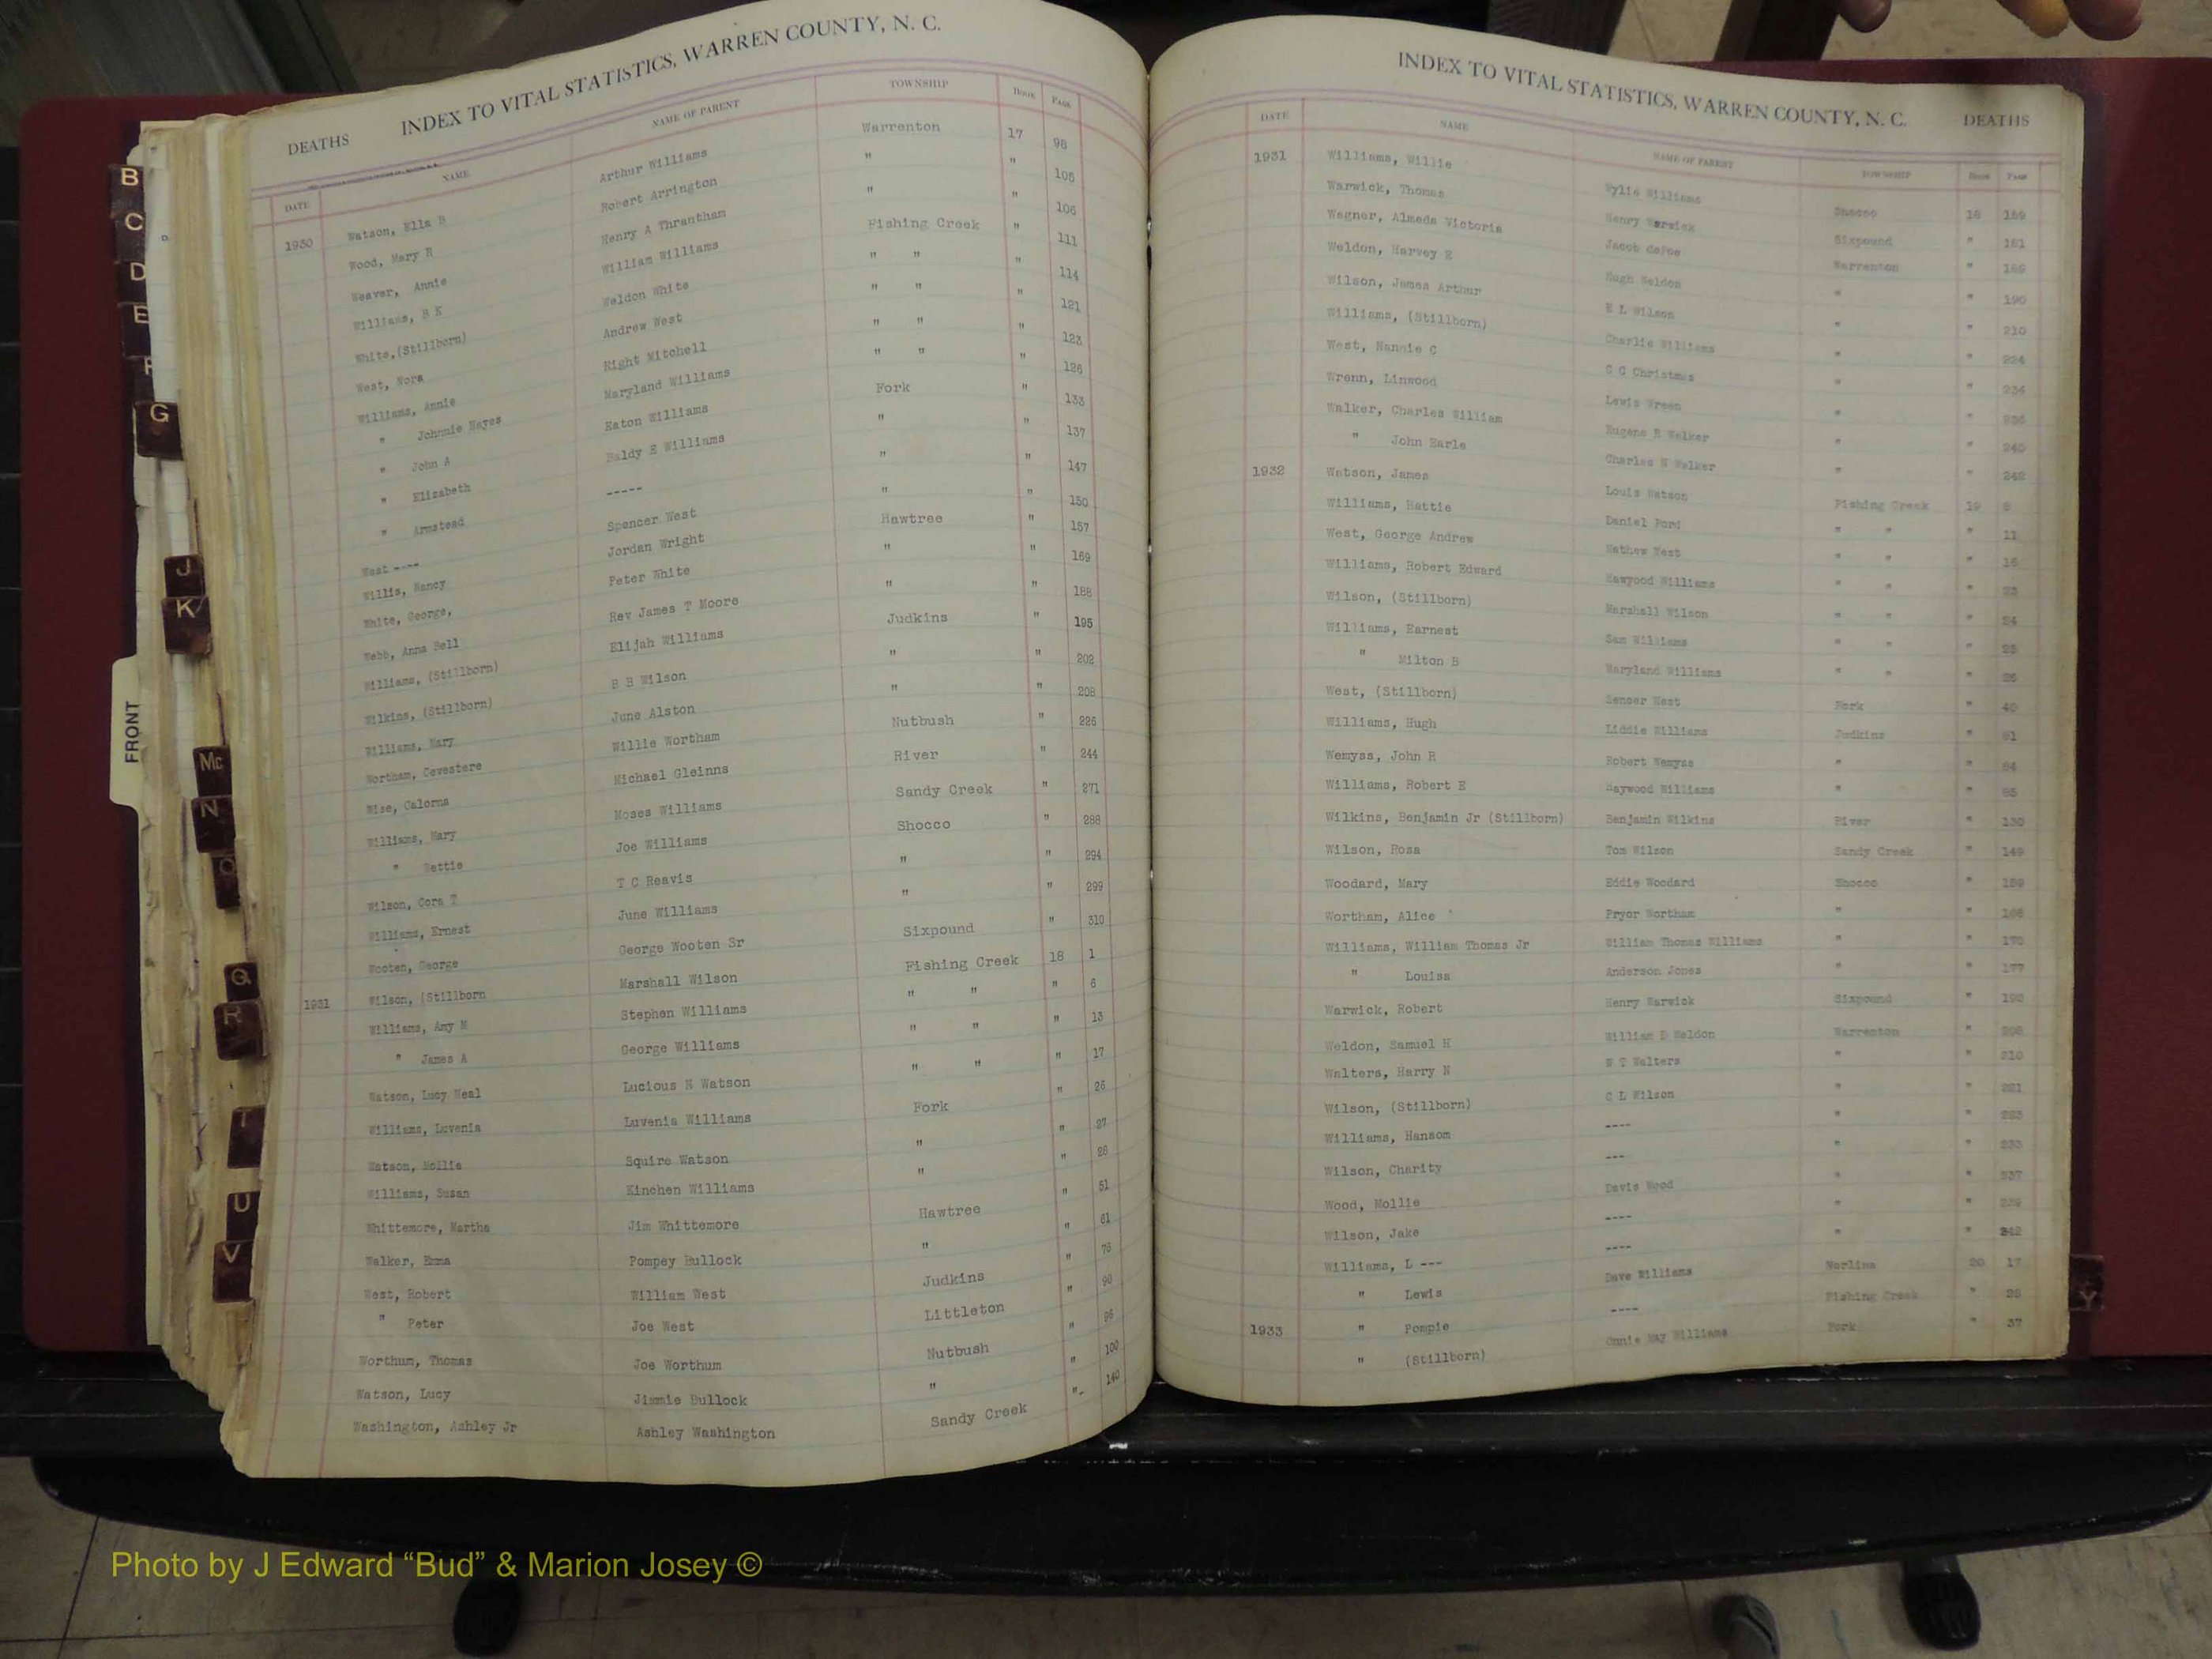 INDEX TO VITAL STATISTICS, WARREN COUNTY, N. C.
DEATHS
DATE NAME NAME OF PARENT TOWNSHIP BOOK PAGE
1930 Watson, Ella B Arthur Williams Warrenton 17 98
Wood, Mary R Robert Arrington " " 105
Weaver, Annie Henry A Thrantham " " 106
Williams, B K William Williams Fishing Creek " 111
White,(Stillborn) Weldon White " " " 114
West, Nora Andrew West " " " 121
Williams, Annie Right Mitchell " " " 123
" Johnnie Hayes Maryland Williams " " " 126
" John A Eaton Williams Fork " 133
" Elizabeth Baldy E Williams " " 137
" Armstead ----- " " 147
West ---- Spencer West " " 150
Willis, Nancy Jordan Wright Hawtree " 157
White, George, Peter White " " 169
Webb, Anna Bell Rev James T Moore " " 188
Williams, (Stillborn) Elijah Williams Judkins " 195
Wilkins, (Stillborn) B B Wilson " " 202
Williams, Mary June Alston " " 208
Wortham, Cevestere Willie Wortham Nutbush " 226
Wise, Calorna Michael Gleinns River " 244
Williams, Mary Moses Williams Sandy Creek " 271
" Bettie Joe Williams Shocco " 288
Wilson, Cora T T C Reavis " " 294
Williams, Ernest June Williams " " 299
Wooten, George George Wooten Sr Sixpound " 310
1931 Wilson, (Stillborn Marshall Wilson Fishing Creek 18 1
Williams, Amy M Stephen Williams " " " 6
" James A George Williams " " " 13
Watson, Lucy Neal Lucious N Watson " " " 17
Williams, Luvenia Luvenia Williams Fork " 26
Watson, Mollie Squire Watson " " 27
Williams, Susan Kinchen Williams " " 28
Whittemore, Martha Jim Whittemore Hawtree " 51
Walker, Emma Pompey Bullock " " 61
West, Robert William West Judkins " 76
" Peter Joe West Littleton " 90
Worthum, Thomas Joe Worthum Nutbush " 96
Watson, Lucy Jimmie Bullock " " 100
Washington, Ashley Jr Ashley Washington Sandy Creek "- 140
INDEX TO VITAL STATISTICS, WARREN COUNTY, N. C. DEATHS
DATE NAME NAME OF PARENT TOWNSHIP BOOK PAGE
1931 Williams, Willie Wylie Williams Shocco 18 159
Warwick, Thomas Henry Warwick Sixpound " 161
Wagner, Almeda Victoria Jacob deFoe Warrenton " 189
Weldon, Harvey E Hugh Weldon " " 190
Wilson, James Arthur E L Wilson " " 210
Williams, (Stillborn) Charlie Williams " " 224
West, Nannie C C C Christmas " " 234
Wrenn, Linwood Lewis Wreen " " 236
Walker, Charles William Eugene R Walker " " 240
" John Earle Charles W Walker " " 242
1932 Watson, James Louis Watson Fishing Creek 19 8
Williams, Hattie Daniel Ford " " " 11
West, George Andrew Mathew West " " " 16
Williams, Robert Edward Haywood Williams " " " 23
Wilson, (Stillborn) Marshall Wilson " " " 24
Williams, Earnest Sam Williams " " " 25
" Milton B Maryland Williams " " " 26
West, (Stillborn) Sencer West Fork " 40
Williams, Hugh Liddie Williams Judkins " 81
Wemyss, John R Robert Wemyss " " 84
Williams, Robert E Haywood Williams " " 85
Wilkins, Benjamin Jr (Stillborn) Benjamin Wilkins River " 130
Wilson, Rosa Tom Wilson Sandy Creek " 149
Woodard, Mary Eddie Woodard Shocco " 159
Wortham, Alice Pryor Wortham " " 168
Williams, William Thomas Jr William Thomas Williams " " 170
" Louisa Anderson Jones " " 177
Warwick, Robert Henry Warwick Sixpound "
Weldon, Samuel H William D Weldon Warrenton "
Walters, Harry N W T Walters " " 210
Wilson, (Stillborn) C L Wilson " " 221
Williams, Hansom ---- " " 223
Wilson, Charity --- " " 233
Wood, Mollie Davis Wood " " 237
Wilson, Jake ---- " " 239
Williams, L --- ---- " " 242
" Lewis Dave Williams Norlina 20 17
1933 " Pompie ---- Fishing Creek " 28
" (Stillborn) Onnie May Williams Fork " 37
B
C
D
E
F
G
J
K
FRONT
Mc
N
O
Q
R
T
U
V
Y
Photo by J Edward “Bud” & Marion Josey ©